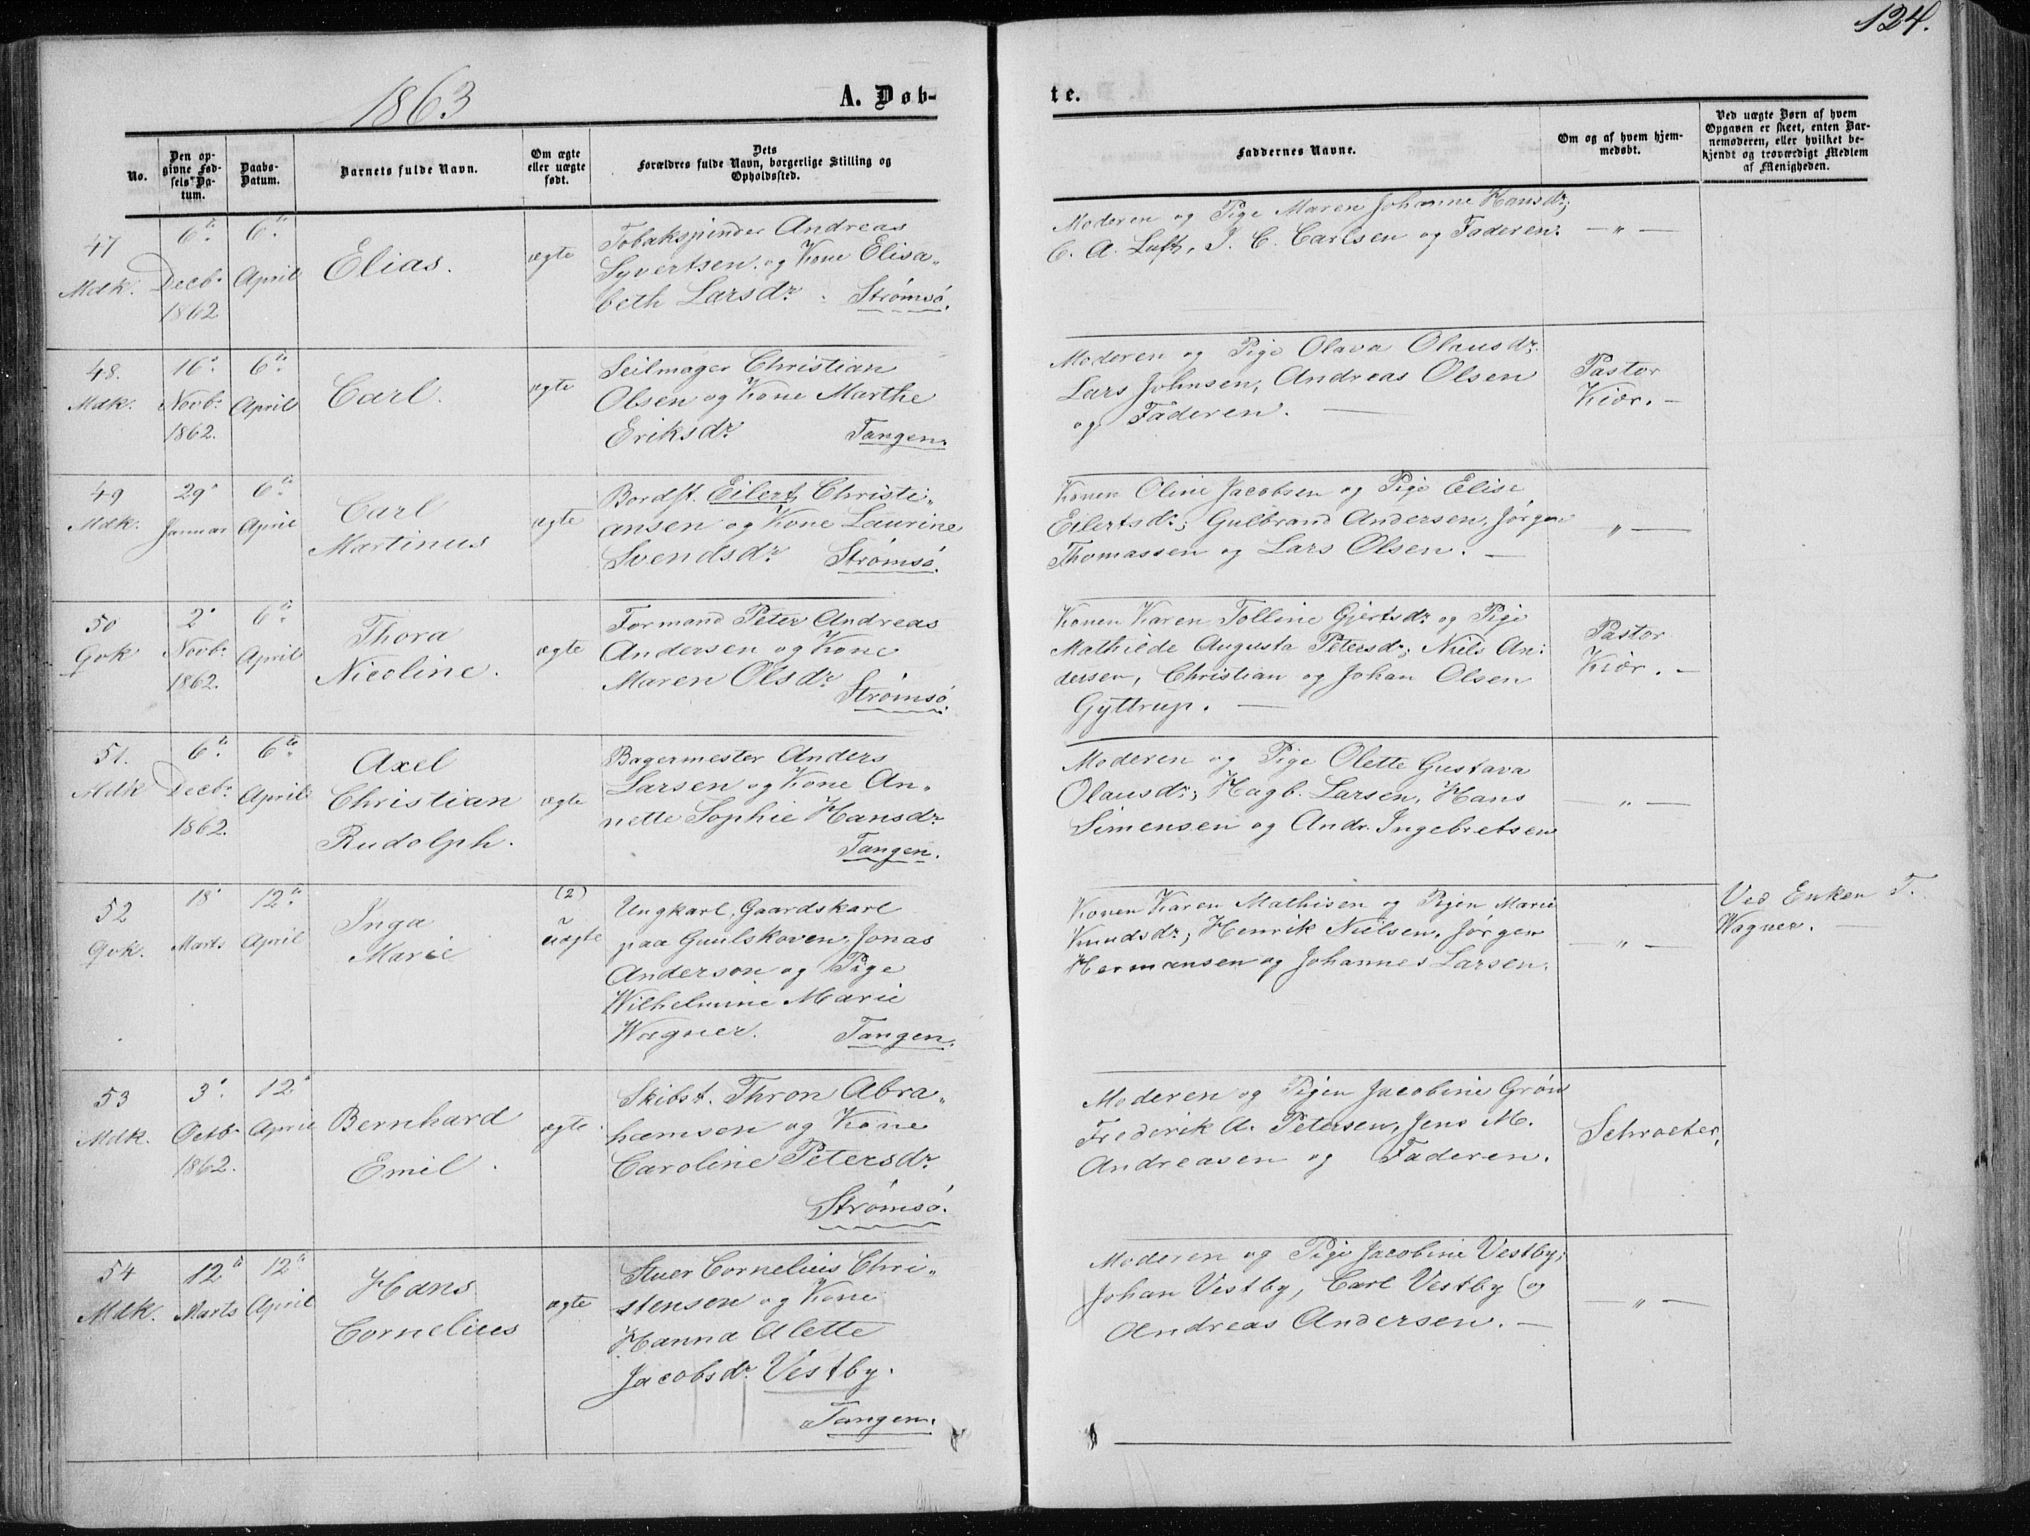 124.
1863
A. Døb-
te.
No.
Den op-
givne Fød-
sels-Da-
tum.
Daabs-
Datum.
Barnets fulde Navn.
Om ægte
eller uægte
født.
Dets
Forældres fulde Navn, borgerlige Stilling og
Opholdssted.
Faddernes Navne.
Om og af hvem hjem-
medøbt.
Ved uægte Børn af hvem
Opgaven er skeet, enten Bar-
nemoderen, eller hvilket be-
kjendt og troværdigt Medlem
af Menigheden.
47
Mdk.
6te
Decbr
1862
6te
April
Elias.
ægte
Tobakspinder Andreas
Syvertsen og Kone Elisa„
beth Larsdr. Strømsø.
Moderen og Pige Maren Johanne Hansdr;
C. A. Luft, J. C. Carlsen og Faderen.
— „ —
48.
Mdk.
16.
Novbr
1862.
6te
April
Carl.
ægte
Seilmager Christian
Olsen og Kone Marthe
Eriksdr. Tangen.
Moderen og Pige Olava Olausdr.
Lars Johnsen, Andreas Olsen
og Faderen. —
Pastor
Kiør. —
49
Mdk.
29.
Januar
6te
April
Carl
Martinus
ægte
Bordst. Eilert Christi„
ansen og Kone Laurine
Svendsdr. Strømsø.
Konen Oline Jacobsen og Pige Elise
Eilertsdr; Gulbrand Andersen, Jørgen
Thomassen og Lars Olsen. —
— „ —
50
Qvk
2.
Novbr
1862.
6te
April
Thora
Nicoline.
ægte
Formand Peter Andreas
Andersen og Kone
Maren Olsdr.
Strømsø.
Konen Karen Tolline Gjertsdr og Pige
Mathilde Augusta Petersdr; Niels An:
dersen, Christian og Johan Olsen
Gyttrup. —
Pastor
Kiør. —
51.
Mdk
6te
Decbr
1862.
6te
April
Axel
Christian
Rudolph.
ægte
Bagermester Anders
Larsen og Kone An„
nette Sophie Hansdr
Tangen.
Moderen og Pige Olette Gustava
Olausdr; Hagb. Larsen, Hans
Simensen og Andr. Ingebretsen
— „ —
52
Qvk.
18.
Marts
12te
April
Inga
Marie
(2)
uægte
Ungkarl, Gaardskarl
paa Guulskoven, Jonas
Anderson og Pige
Wilhelmine Marie
Wagner. Tangen.
Konen Karen Mathisen og Pigen Marie
Knudsdr; Henrik Nielsen, Jørgen
Hermansen og Johannes Larsen.
— „ —
Ved Enken T.
Wagner. —
53
Mdk.
3.
Octbr
1862.
12.
April
Bernhard
Emil.
ægte.
Skibst. Thron Abra„
hamsen og Kone
Caroline Petersdr.
Strømsø.
Moderen og Pigen Jacobine Grøn
Frederik A. Petersen, Jens M.
Andreasen og Faderen.
Schroeter.
54
Mdk.
12te
Marts
12te
April
Hans
Cornelius
ægte
Stuer Cornelius Chri„
stensen og Kone
Hanna Alette
Jacobsdr. Vestby.
Tangen.
Moderen og Pige Jacobine Vestby;
Johan Vestby, Carl Vestby og
Andreas Andersen. —
— „ —